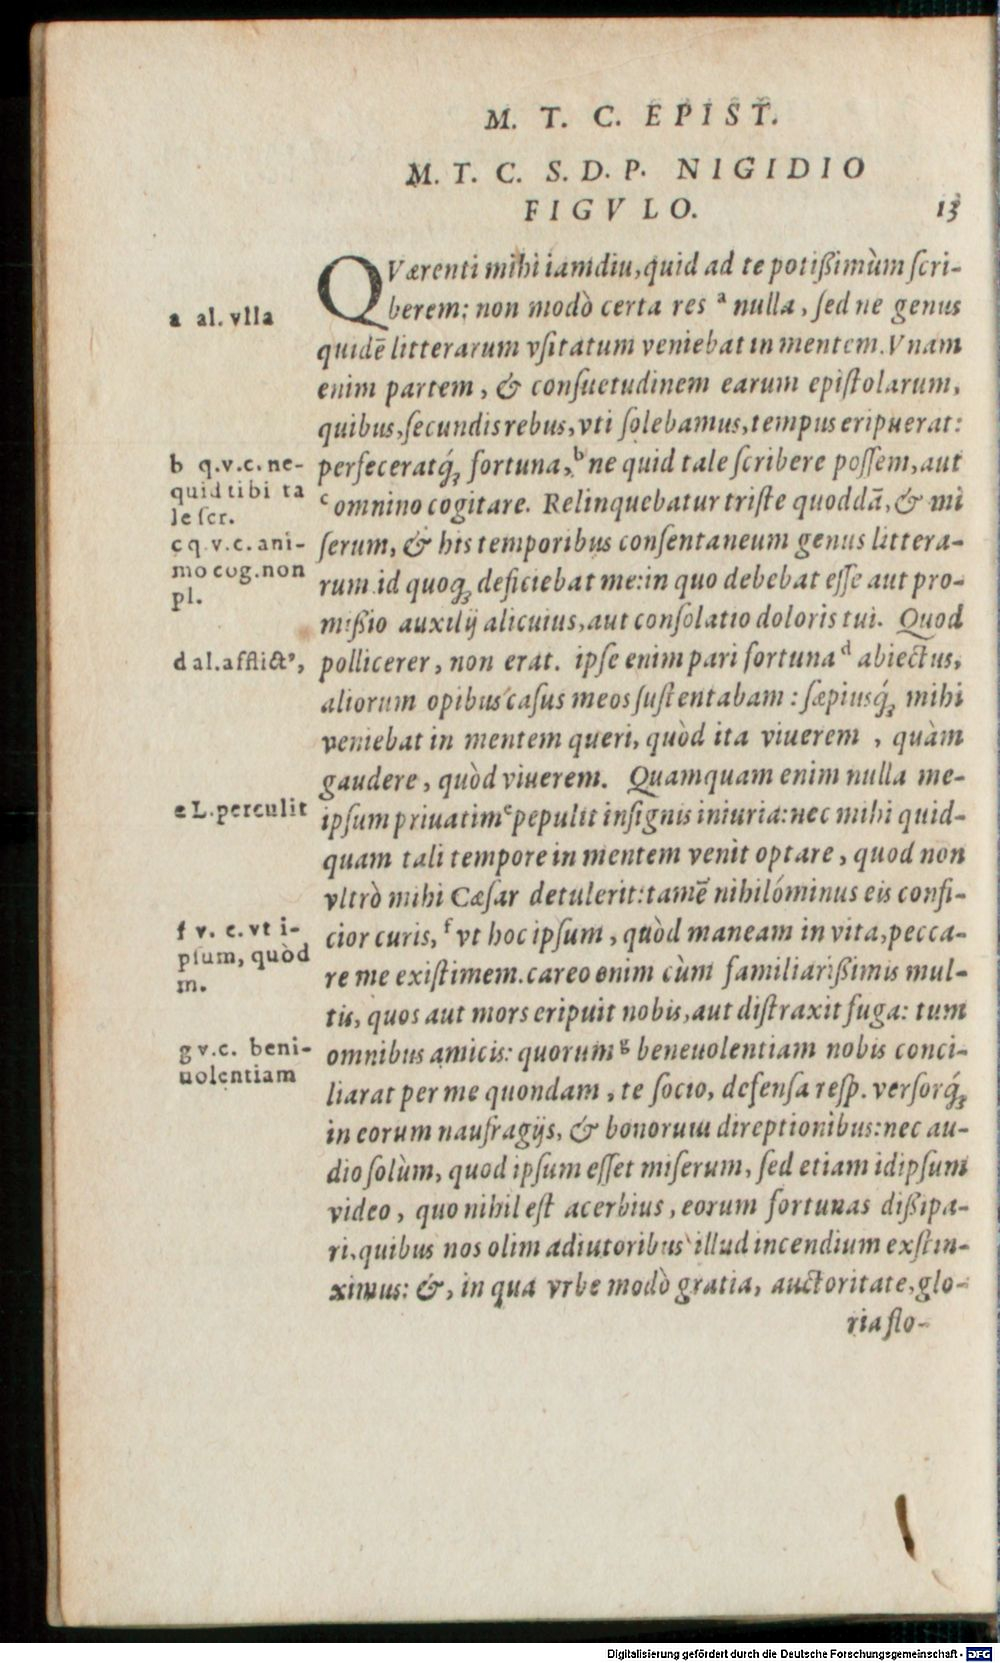 M. T. C. EPIST.
M. T. C. S. D. P. NIGIDIO
FIGVLO. 13
QVærenti mihi iamdiu, quid ad te potißimùm ſcri-
berem; non modò certa res ᵃ nulla, ſed ne genus
quidē litterarum vſitatum veniebat in mentem. Vnam
enim partem, & conſuetudinem earum epiſtolarum,
quibus, ſecundis rebus, vti ſolebamus, tempus eripuerat:
perfeceratq́ꝫ fortuna, ᵇ ne quid tale ſcribere poſſem, aut
ᶜ omnino cogitare. Relinquebatur triſte quoddā, & mi
ſerum, & his temporibus conſentaneum genus littera-
rum. id quoqꝫ deficiebat me: in quo debebat eſſe aut pro-
mißio auxilij alicuius, aut conſolatio doloris tui. Quod
pollicerer, non erat. ipſe enim pari fortuna ᵈ abiectus,
aliorum opibus caſus meos ſuſtentabam: ſæpiusq́ꝫ mihi
veniebat in mentem queri, quòd ita viuerem , quàm
gaudere, quòd viuerem. Quamquam enim nulla me-
ipſum priuatim ᵉ pepulit inſignis iniuria: nec mihi quid-
quam tali tempore in mentem venit optare, quod non
vltrò mihi Cæſar detulerit: tamē nihilóminus eis confi-
cior curis, ᶠ vt hoc ipſum, quòd maneam in vita, pecca-
re me exiſtimem. careo enim cùm familiarißimis mul-
tis, quos aut mors eripuit nobis, aut diſtraxit fuga: tum
omnibus amicis: quorum ᵍ beneuolentiam nobis conci-
liarat per me quondam, te ſocio, defenſa reſp. verſorq́ꝫ
in eorum naufragijs, & bonorum direptionibus: nec au-
dio ſolùm, quod ipſum eſſet miſerum, ſed etiam idipſum
video, quo nihil eſt acerbius, eorum fortunas dißipa-
ri, quibus nos olim adiutoribus illud incendium exſtin-
ximus: &, in qua vrbe modò gratia, auctoritate, glo-
ria flo-
a al. vlla
b q.v.c. ne-
quid tibi ta
le ſcr.
c q.v.c. ani-
mo cog. non
pl.
d al. afflictꝰ,
e L. perculit
f v. c. vt i-
pſum, quòd
m.
g v.c. beni-
uolentiam
Digitalisierung gefördert durch die Deutsche Forschungsgemeinschaft - DFG